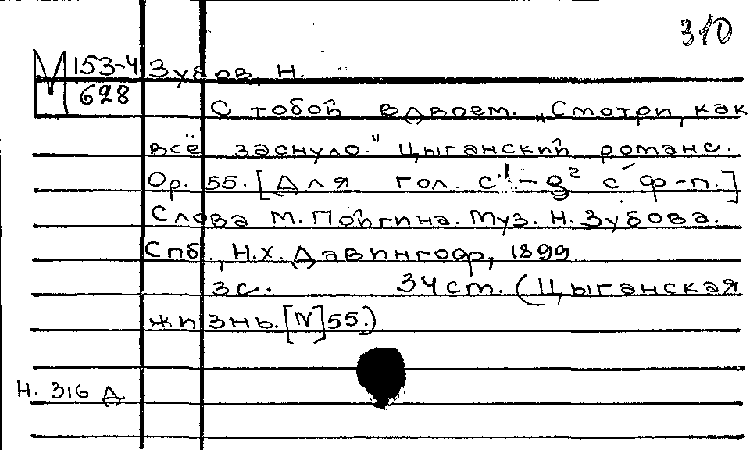 310
М 153-4 Зубов, Н.
628 С тобой вдвоем. „Смотри, как
всё заснуло." Цыганский романс.
Ор. 55. [Для гол. c¹-g² с ф-п.]
Слова М. Пойгина. Муз. Н. Зубова.
Спб., Н.Х. Давингоф, 1899
3 с. 34 см. (Цыганская
жизнь. [N] 55.)
Н. 316 Д